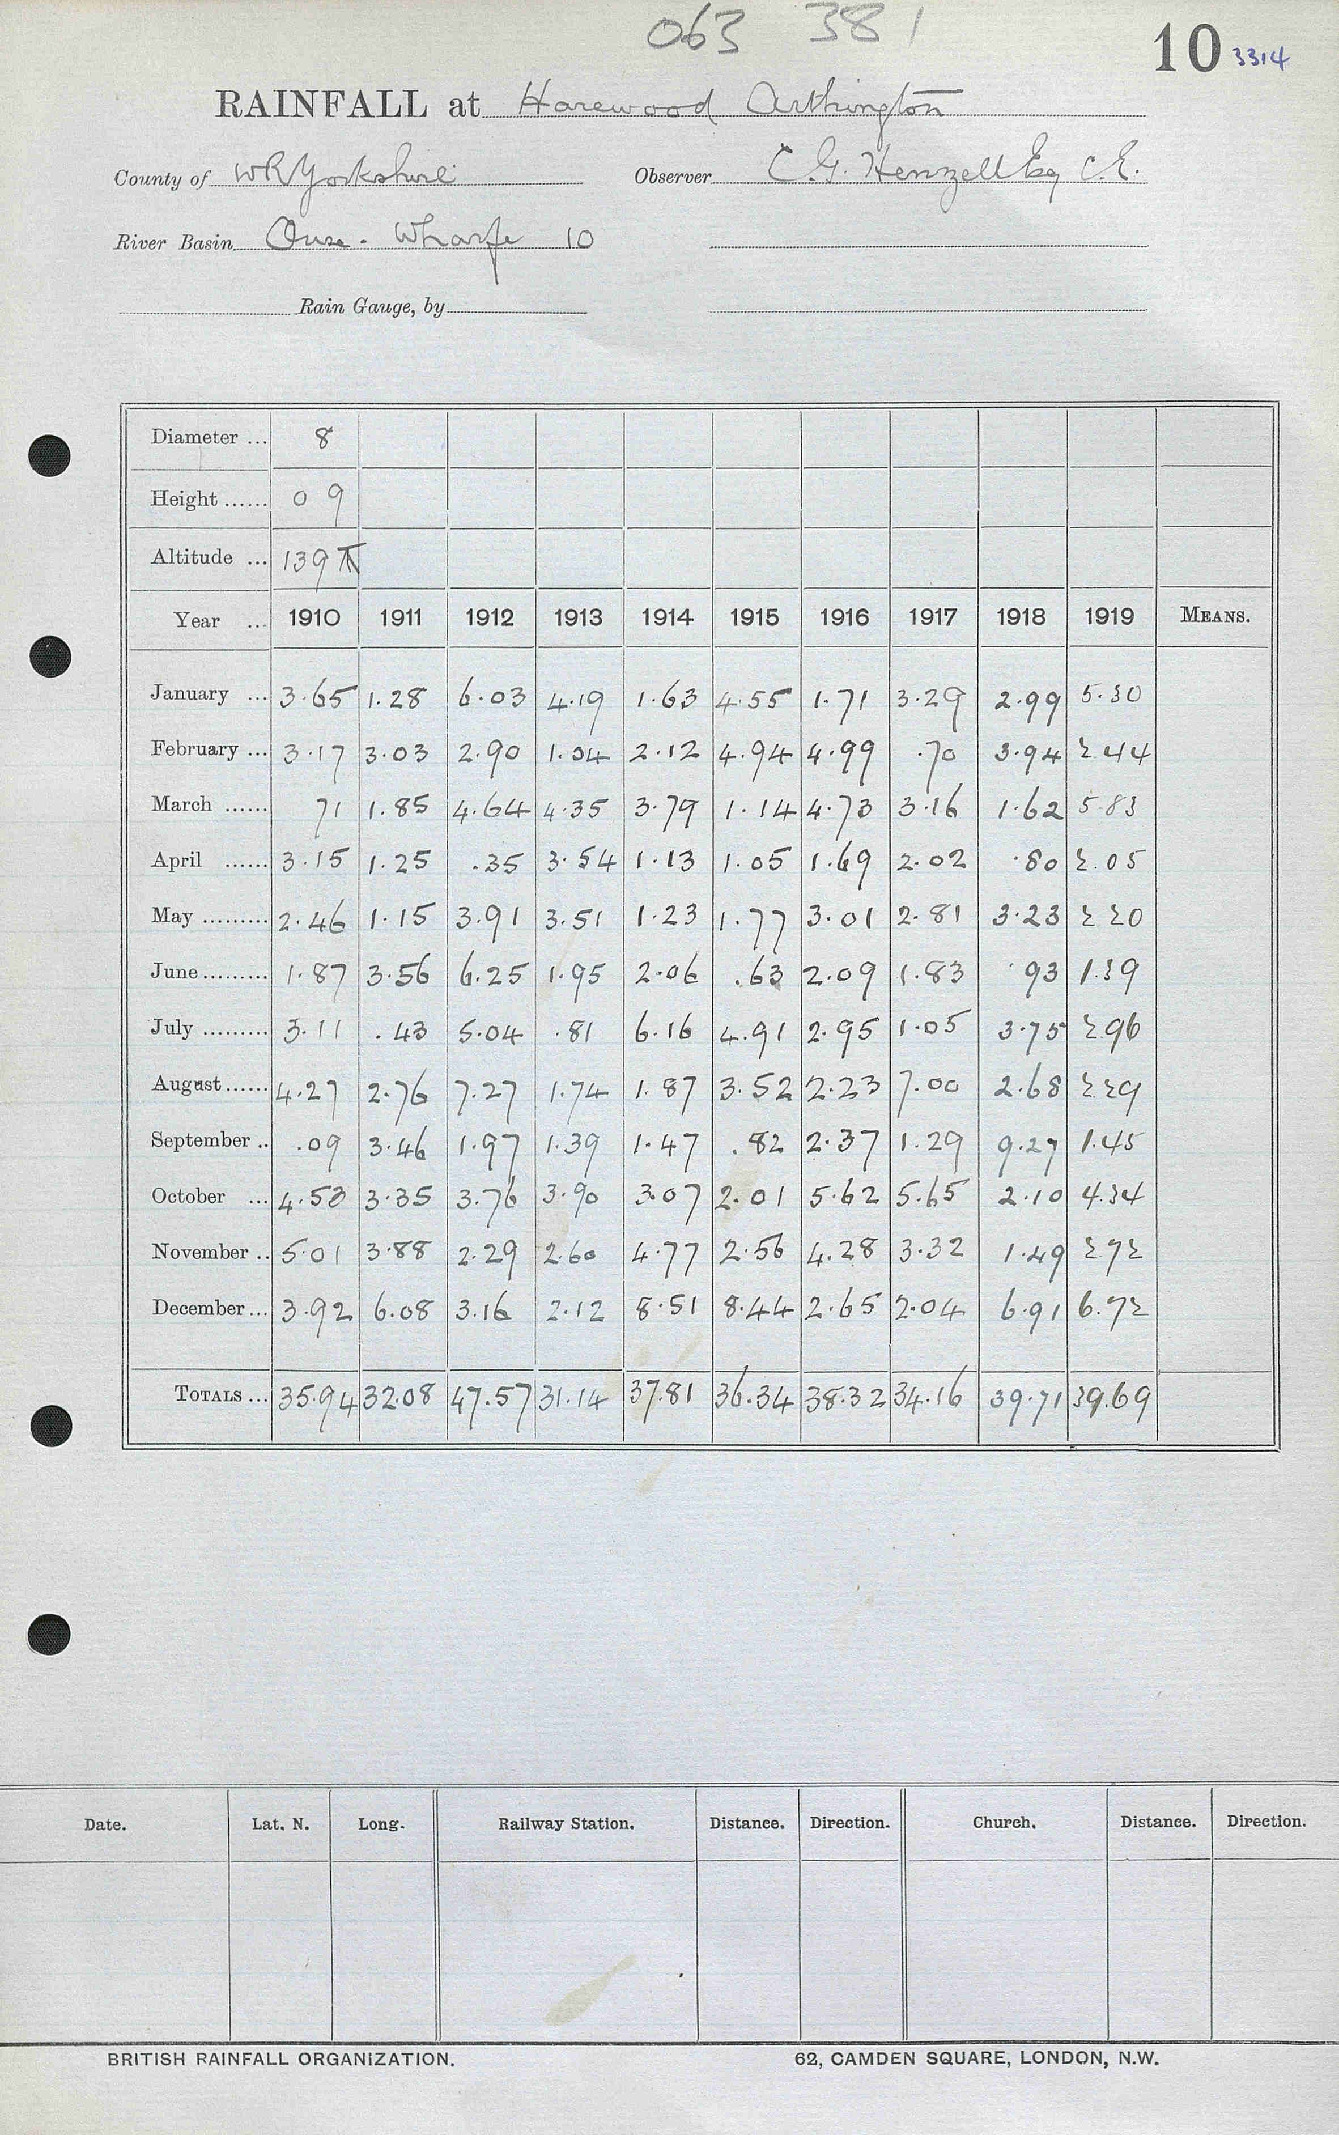 063 381
10 3314
RAINFALL at Harewood Arthington
County of WR Yorkshire Observer C. G. Henzell Esq C.E.
River Basin Ouse - Wharfe 10
Rain Gauge, by
Diameter ... 8
Height ...... 0 9
Altitude ... 139
Year ... 1910 1911 1912 1913 1914 1915 1916 1917 1918 1919 MEANS.
January ... 3.65 1.28 6.03 4.19 1.63 4.55 1.71 3.29 2.99 5.30
February ... 3.17 3.03 2.90 1.04 2.12 4.94 4.99 .70 3.94 2.44
March ...... 71 1.85 4.64 4.35 3.79 1.14 4.73 3.16 1.62 5.83
April ...... 3.15 1.25 .35 3.54 1.13 1.05 1.69 2.02 .80 2.05
May ......... 2.46 1.15 3.91 3.51 1.23 1.77 3.01 2.81 3.23 2 20
June ......... 1.87 3.56 6.25 1.95 2.06 .63 2.09 1.83 .93 1.39
July ......... 3.11 .43 5.04 .81 6.16 4.91 2.95 1.05 3.75 2.96
August ...... 4.27 2.76 7.27 1.74 1.87 3.52 2.23 7.00 2.68 2 29
September .. .09 3.46 1.97 1.39 1.47 .82 2.37 1.29 9.27 1.45
October ... 4.53 3.35 3.76 3.90 3.07 2.01 5.62 5.65 2.10 4.34
November .. 5.01 3.88 2.29 2.60 4.77 2.56 4.28 3.32 1.49 2 72
December ... 3.92 6.08 3.16 2.12 8.51 8.44 2.65 2.04 6.91 6.72
TOTALS ... 35.94 32.08 47.57 31.14 37.81 36.34 38.32 34.16 39.71 39.69
Date. Lat. N. Long. Railway Station. Distance. Direction. Church. Distance. Direction.
BRITISH RAINFALL ORGANIZATION. 62, CAMDEN SQUARE, LONDON, N.W.